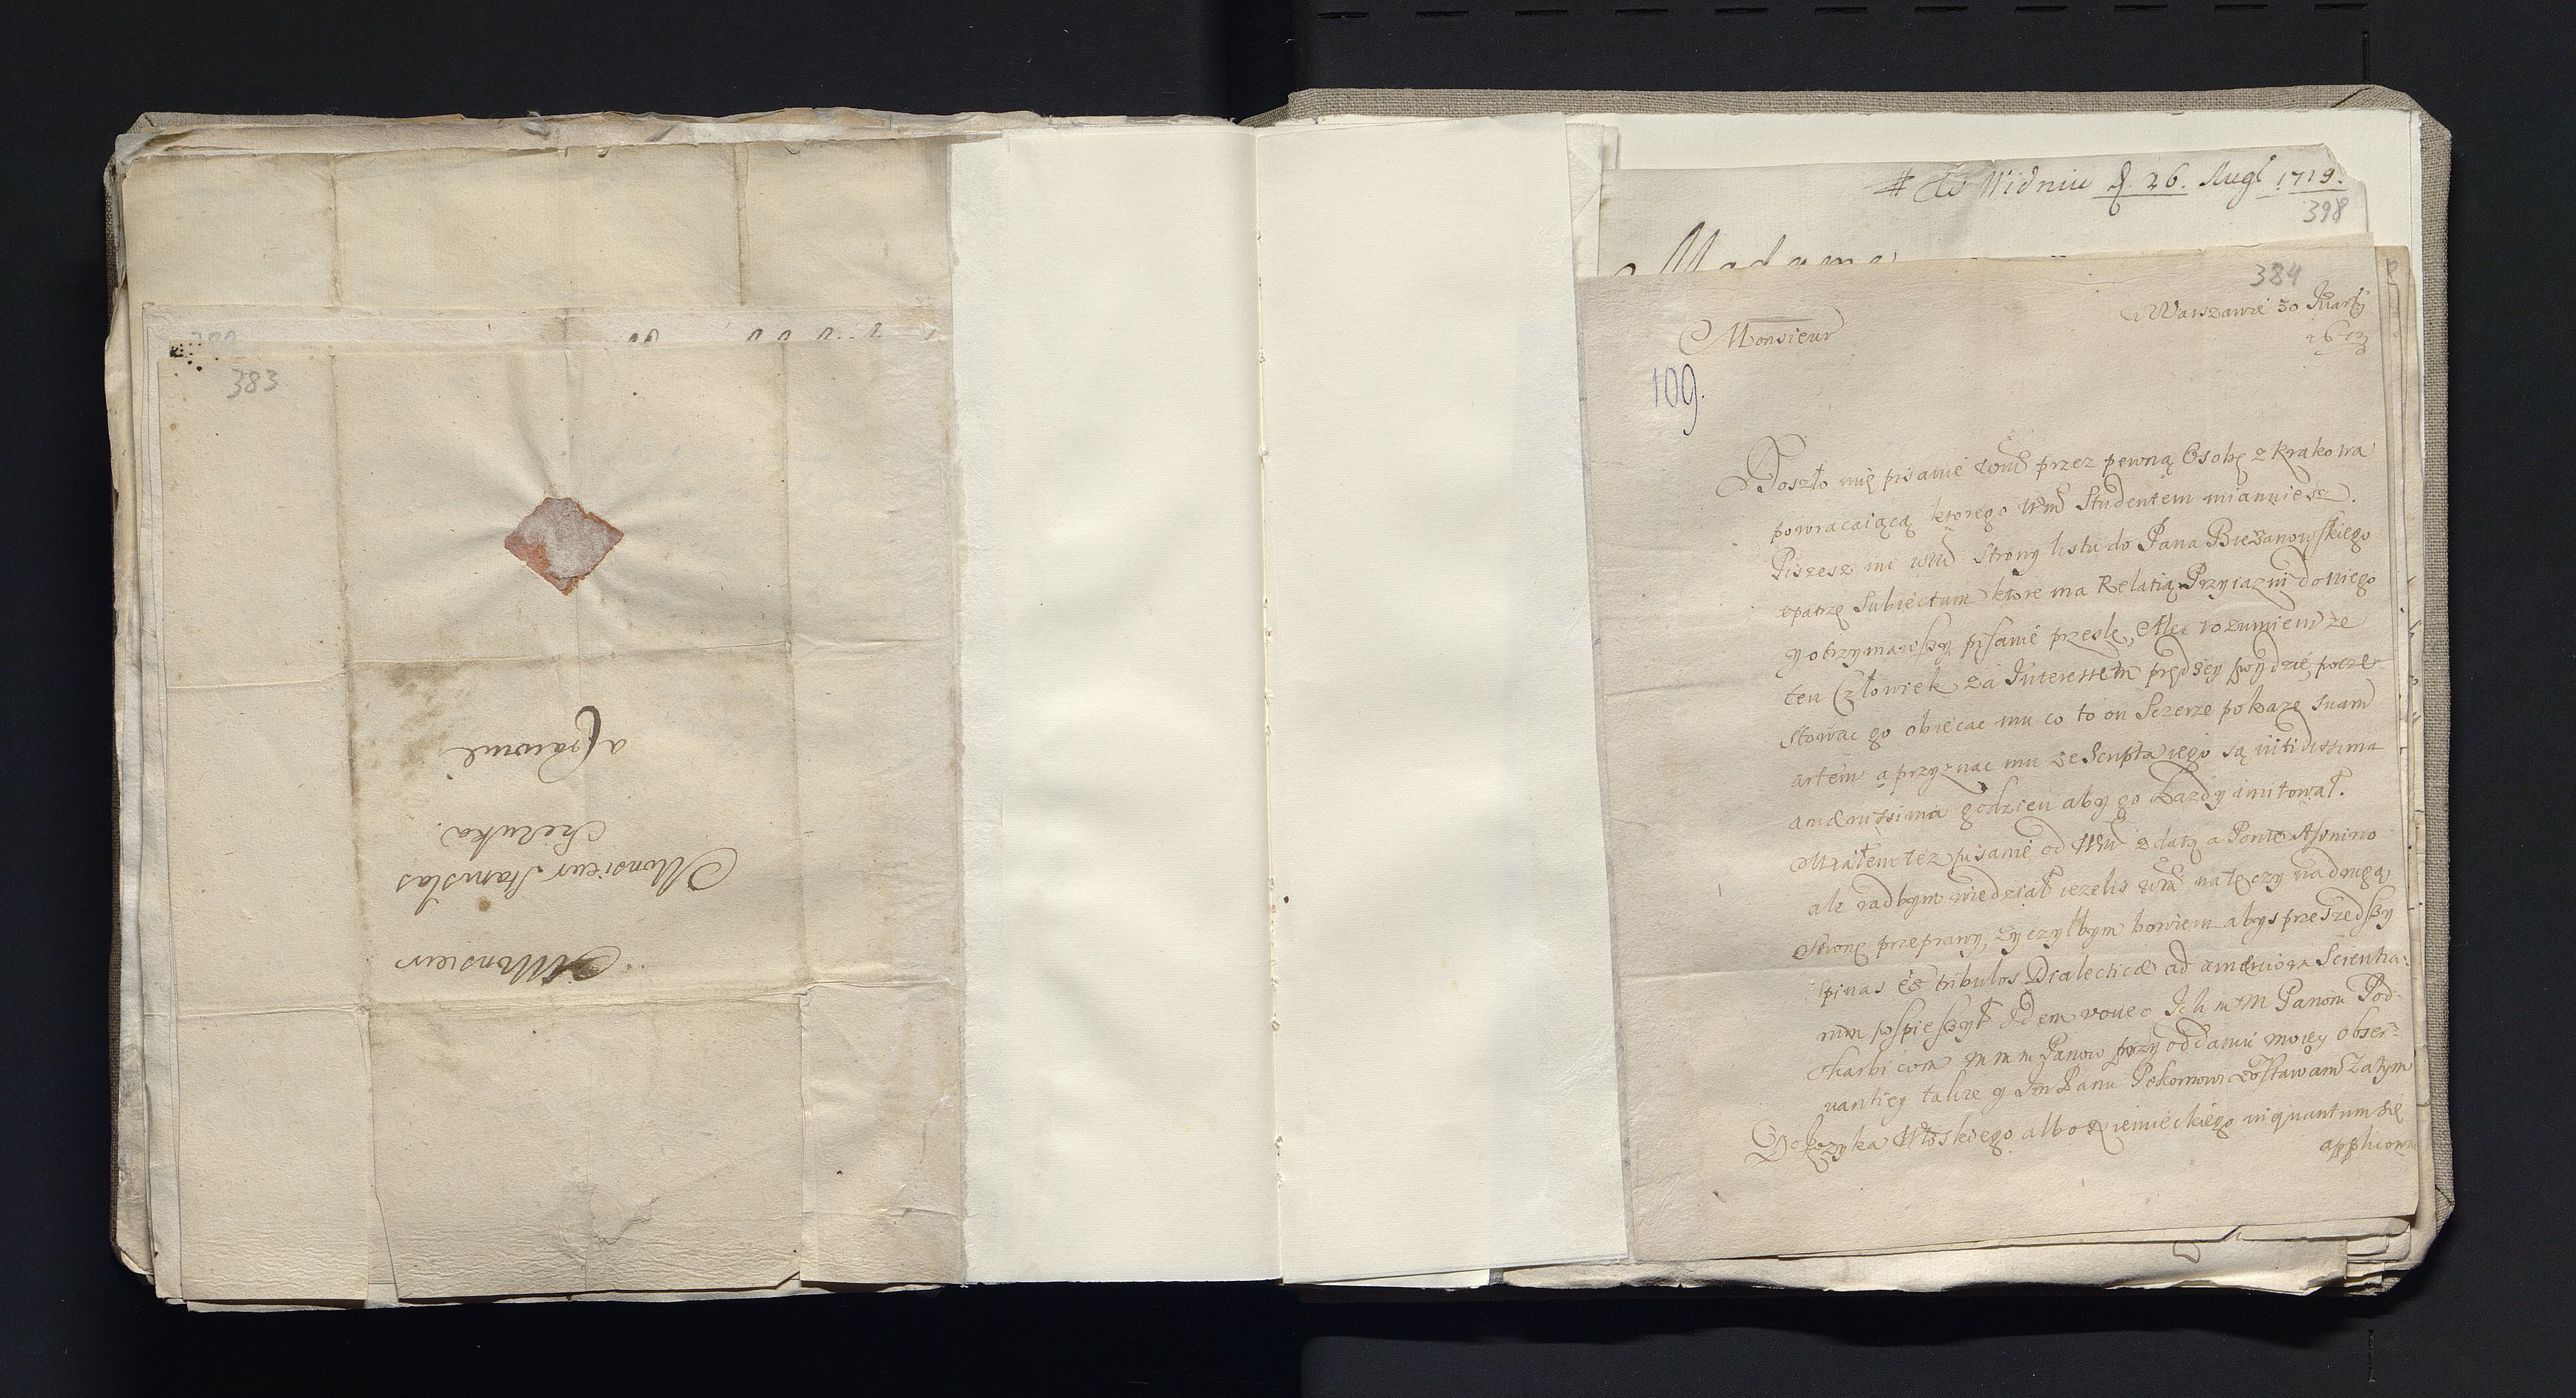 383
A Monsieur
Monsieur Stanislas
a Cracovie
# de Widniu d. 26. Aug 1719.
398
Madame
384
w Warszawie 30 Marty
Monsieur
109.
Doszło mię pisanie przez pewną Osobę z Krakowa
powracaiącą ktorego Wm Studentem mianuiesz.
Piszesz mi Wm strony listu do Pana Bieżanowskiego
upatrzę Subiectum ktore ma Relatią Przyiazni do niego
y otrzymawszy pisanie przeslę, Alec rozumiem ze
ten Człowiek za Interessem prędzey poydzie, poczę-
stowac go obiecac mu co to on Sczerze pokaze suam
artem a przyznac mu ze Scripta iego są nitidissima
amænissima godzien aby go każdy imitował.
Miałem tez pisanie od Wm z datą a Ponte Asinino
ale radbym wiedział iezelis Wm na tę czy na drugą
Stronę przeprawy, zyczyłbym bowiem abys przeszedszy
spinas & tribulos Dialecticæ ad amæniora Scientia-
rum pospieszył Idem voueo Ich mm Panom Pod-
charbicom mmm Panow przy oddaniu mowey obser-
uantiey takze y Im Panu Pekornowi zostawam Zatym
Do Języka Włoskiego albo Niemieckiego inquantum się